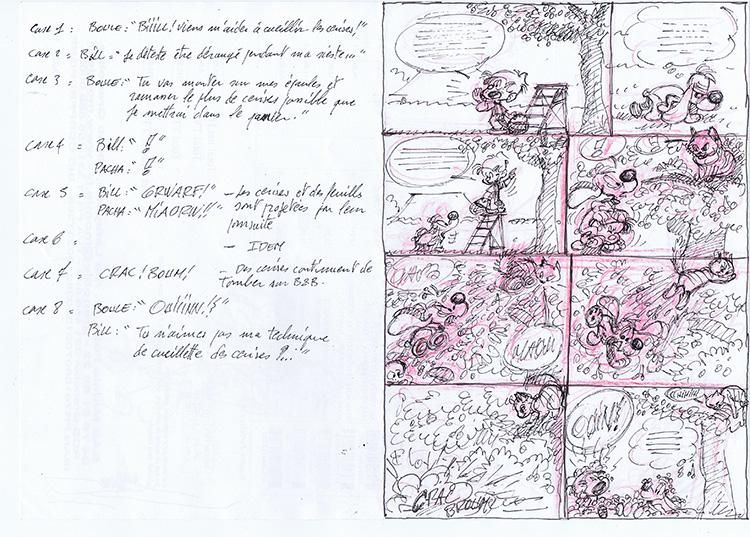 Case 1 : BOULE : "BiiiLL ! Viens m'aider à cueillir les cerises !"
Case 2 = Bill = "Je déteste être dérangé pendant ma sieste..."
Case 3 = BOULE : "Tu vas monter sur mes épaules et
ramasser le plus de cerises possible que
je mettrai dans le panier."
Case 4 = Bill : "!?"
PACHA : "!?"
Case 5 = Bill : "GRWARF!" – Les cerises et des feuilles
PACHA : "MiAORW!!" sont projetées par leur
poursuite
Case 6 =
– IDEM
Case 7 = CRAC ! BOUM ! – Des cerises continuent de
Tomber sur B&B.
Case 8 = BOULE : "OUiiiNN !?"
Bill : "Tu n'aimes pas ma technique
de cueillette des cerises ?..."
CRAC
BROUM!